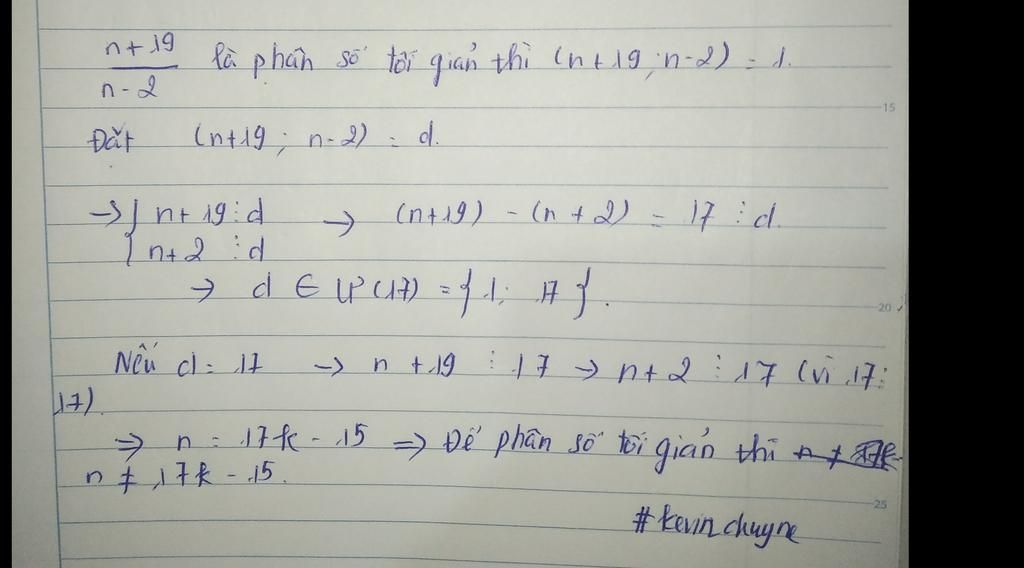 n+19
n-2 là phân số tối giản thì (n+19; n-2) = 1.
15
Đặt (n+19; n-2) = d.
→ { n+19 ⋮ d → (n+19) - (n+2) = 17 ⋮ d.
n+2 ⋮ d
→ d ∈ Ư(17) = { 1; 17 }.
20
Nếu d = 17 → n+19 ⋮ 17 → n+2 ⋮ 17 (vì 17 ⋮
17).
⇒ n = 17k - 15 ⇒ Để phân số tối giản thì
n ≠ 17k - 15.
25
#kevinchuyne